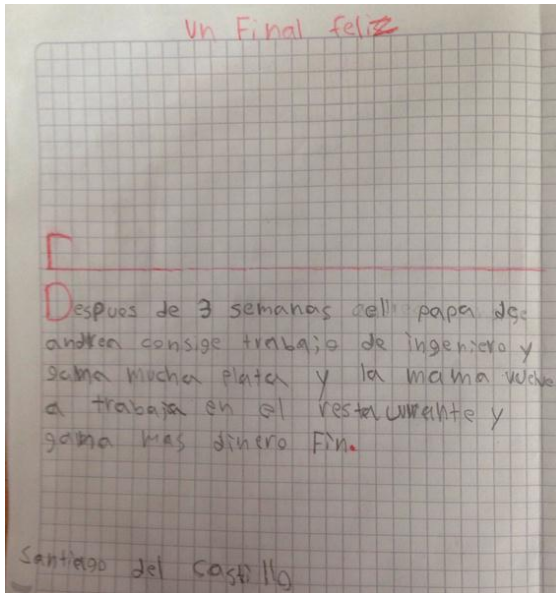 Un Final feliz
Despues de 3 semanas el papa de
andrea consige trabajo de ingeniero y
gama mucha plata y la mama vuelve
a trabaja en el restaurante y
gama mas dinero Fin.
Santiago del castillo